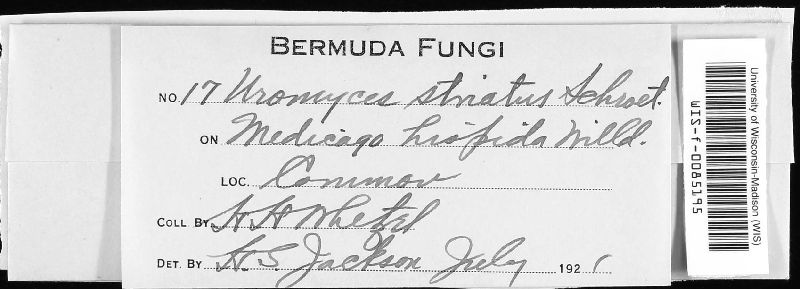 BERMUDA FUNGI
NO. 17 Uromyces striatus Schroet.
ON Medicago hispida Willd.
LOC. Common
COLL. BY H H Whetzel
DET. BY H. S. Jackson July 1921
University of Wisconsin-Madison (WIS)
WIS-f-0085195